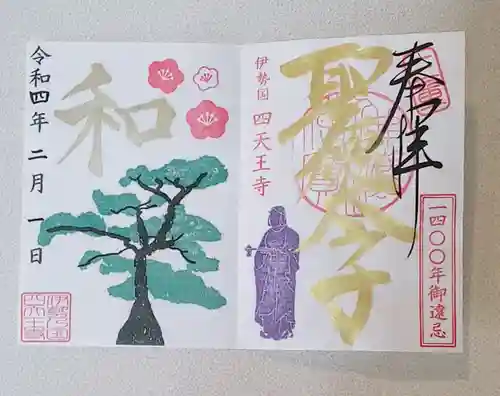 奉拝
一四〇〇年御遠忌
聖太子
伊勢国 四天王寺
和
令和四年 二月 一日